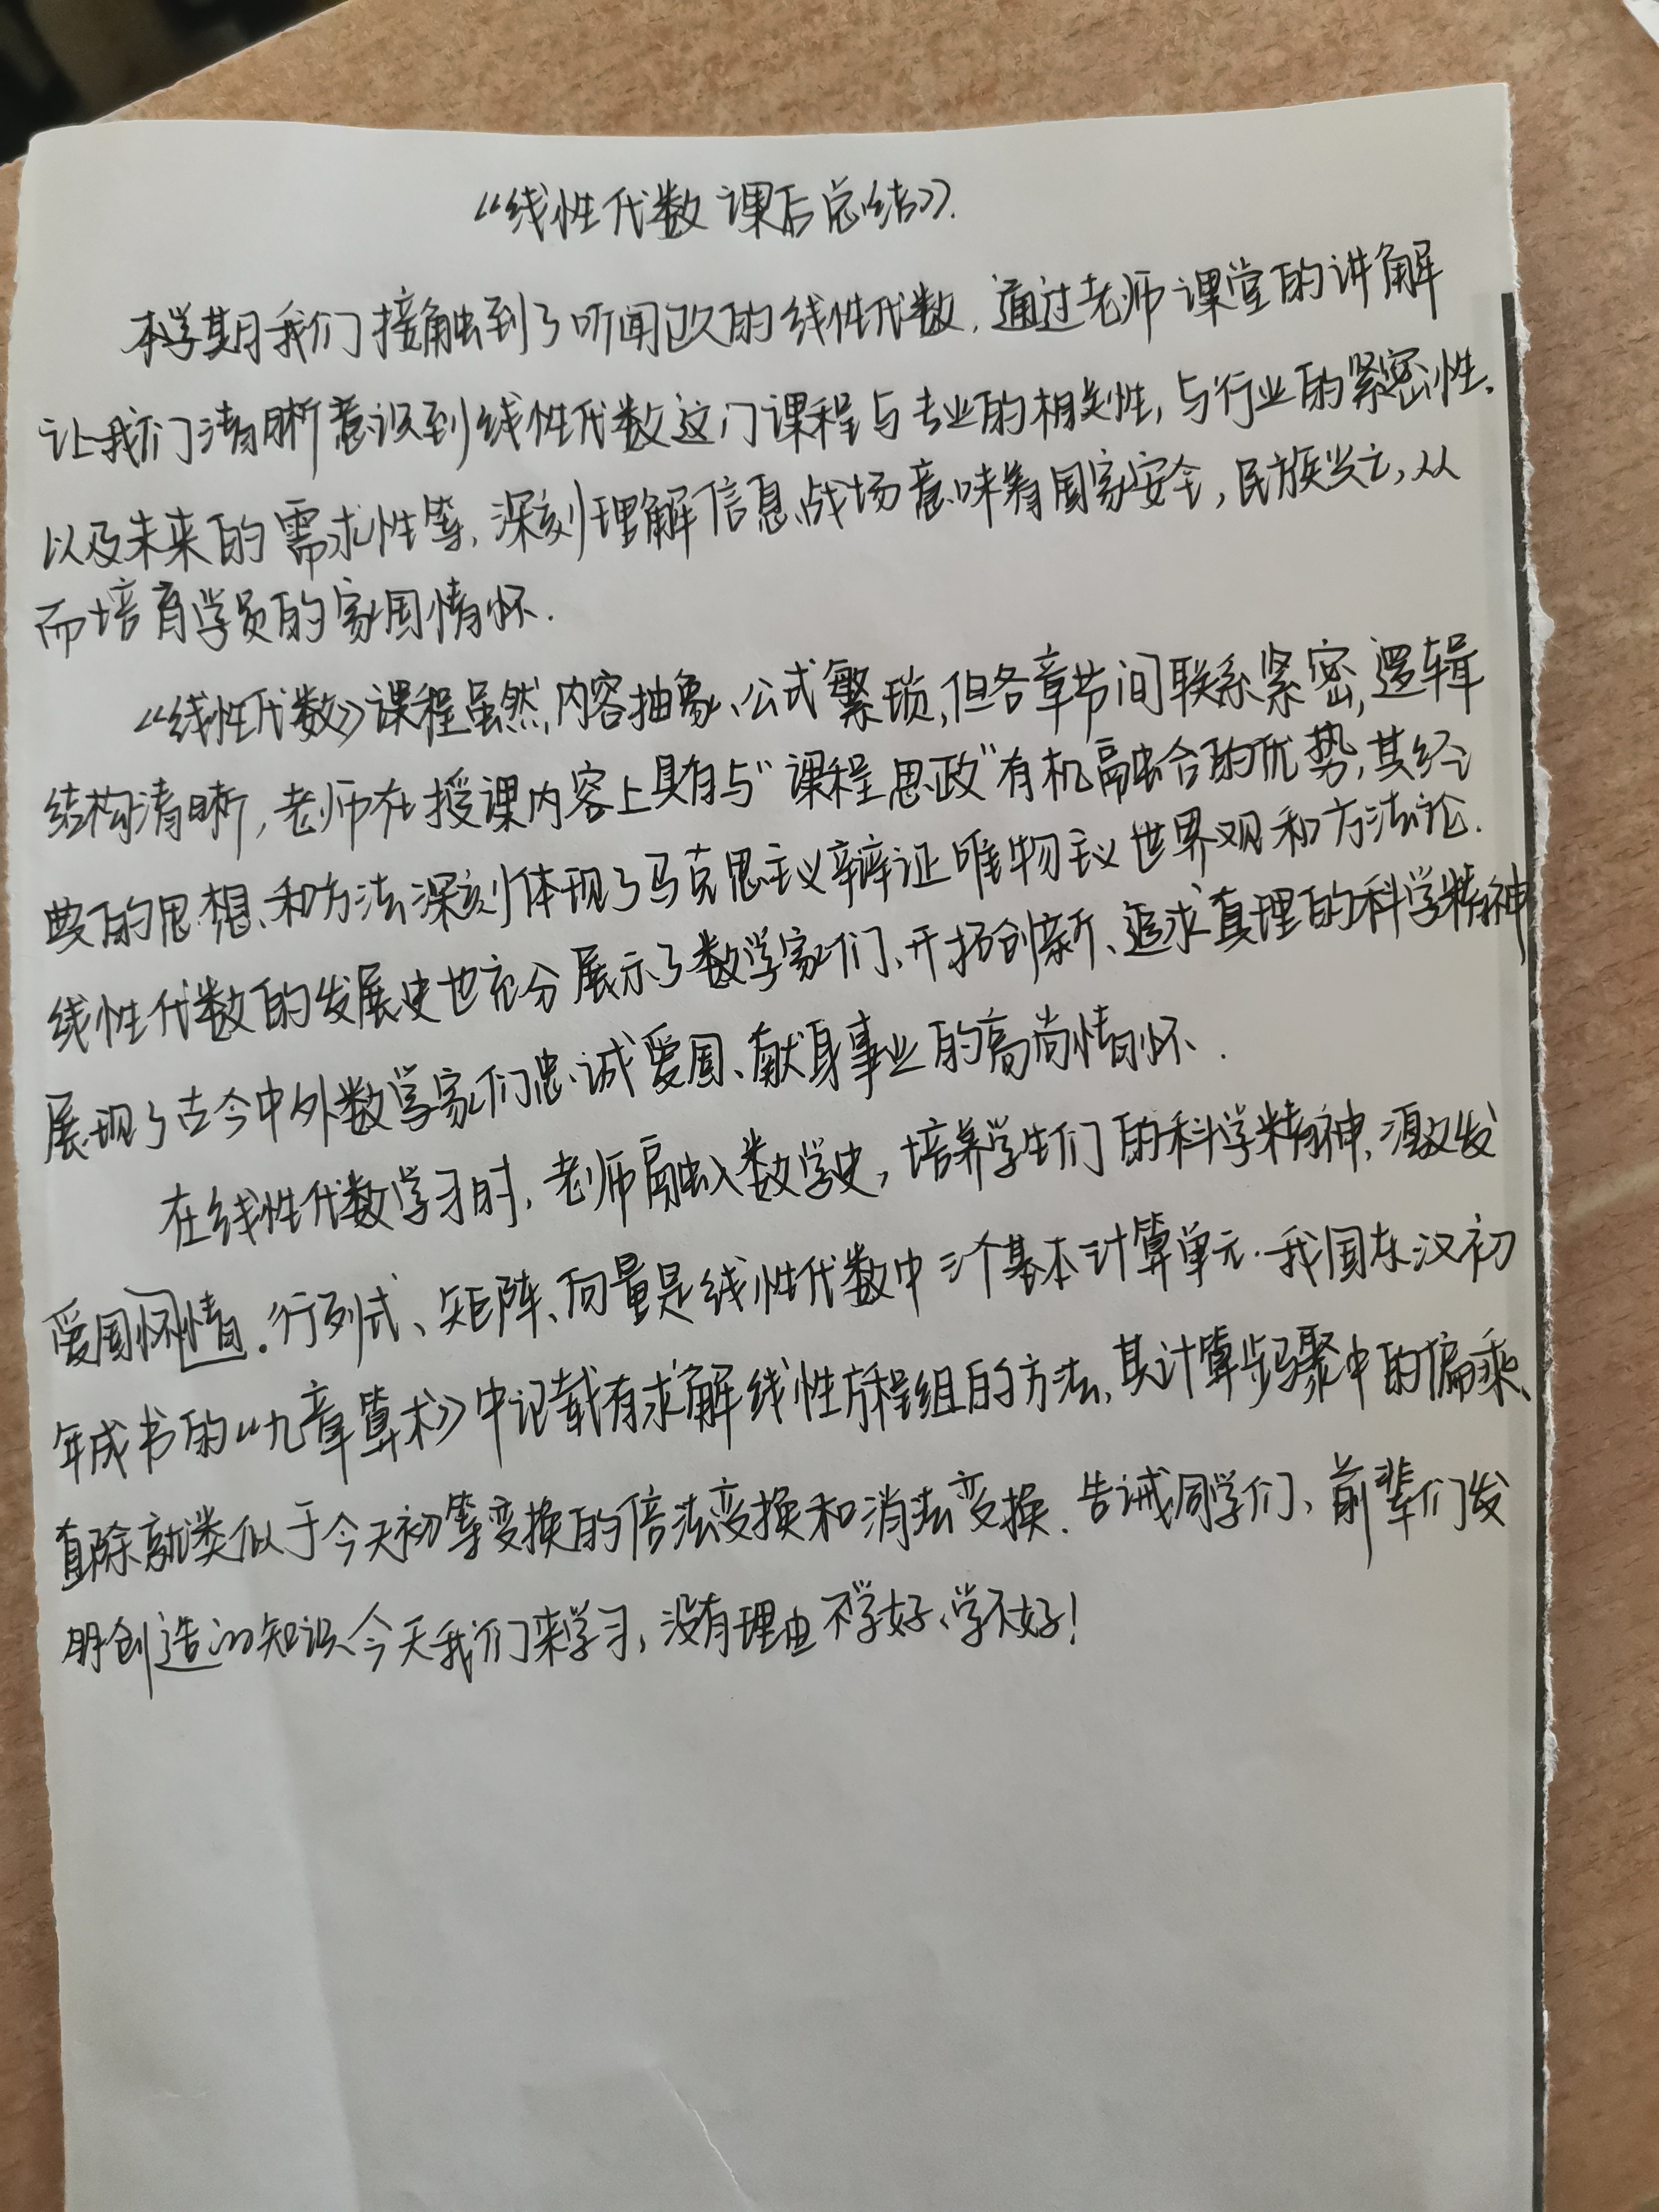 《线性代数课后总结》.
本学期我们接触到了听闻已久的线性代数,通过老师课堂的讲解
让我们清晰意识到线性代数这门课程与专业的相关性,与行业的紧密性、
以及未来的需求性等,深刻理解信息战场意味着国家安全,民族兴亡,从
而培育学员的家国情怀.
《线性代数》课程虽然,内容抽象、公式繁琐,但各章节间联系紧密,逻辑
结构清晰,老师在授课内容上具有与“课程思政”有机融合的优势,其经
典的思想、和方法深刻体现了马克思主义辩证唯物主义世界观和方法论.
线性代数的发展史也充分展示了数学家们、开拓创新、追求真理的科学精神
展现了古今中外数学家们忠诚爱国、献身事业的高尚情怀.
在线性代数学习时,老师融入数学史,培养学生们的科学精神、激发
爱国怀情.行列式、矩阵、向量是线性代数中三个基本计算单元.我国东汉初
年成书的《九章算术》中记载有求解线性方程组的方法,其计算步骤中的偏乘、
直除就类似于今天初等变换的倍法变换和消法变换.告诫同学们、前辈们发
明创造的知识、今天我们来学习,没有理由不学好、学不好!